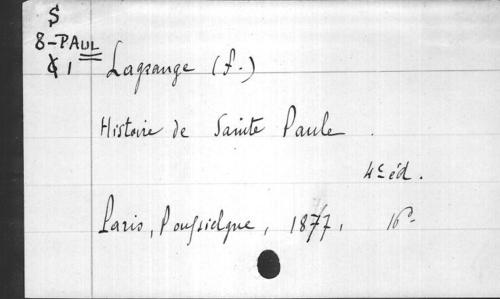 S
8-PAUL
1 Lagrange (F.)
Histoire de Sainte Paule.
4e éd.
Paris, Poussielgue, 1877, 16°